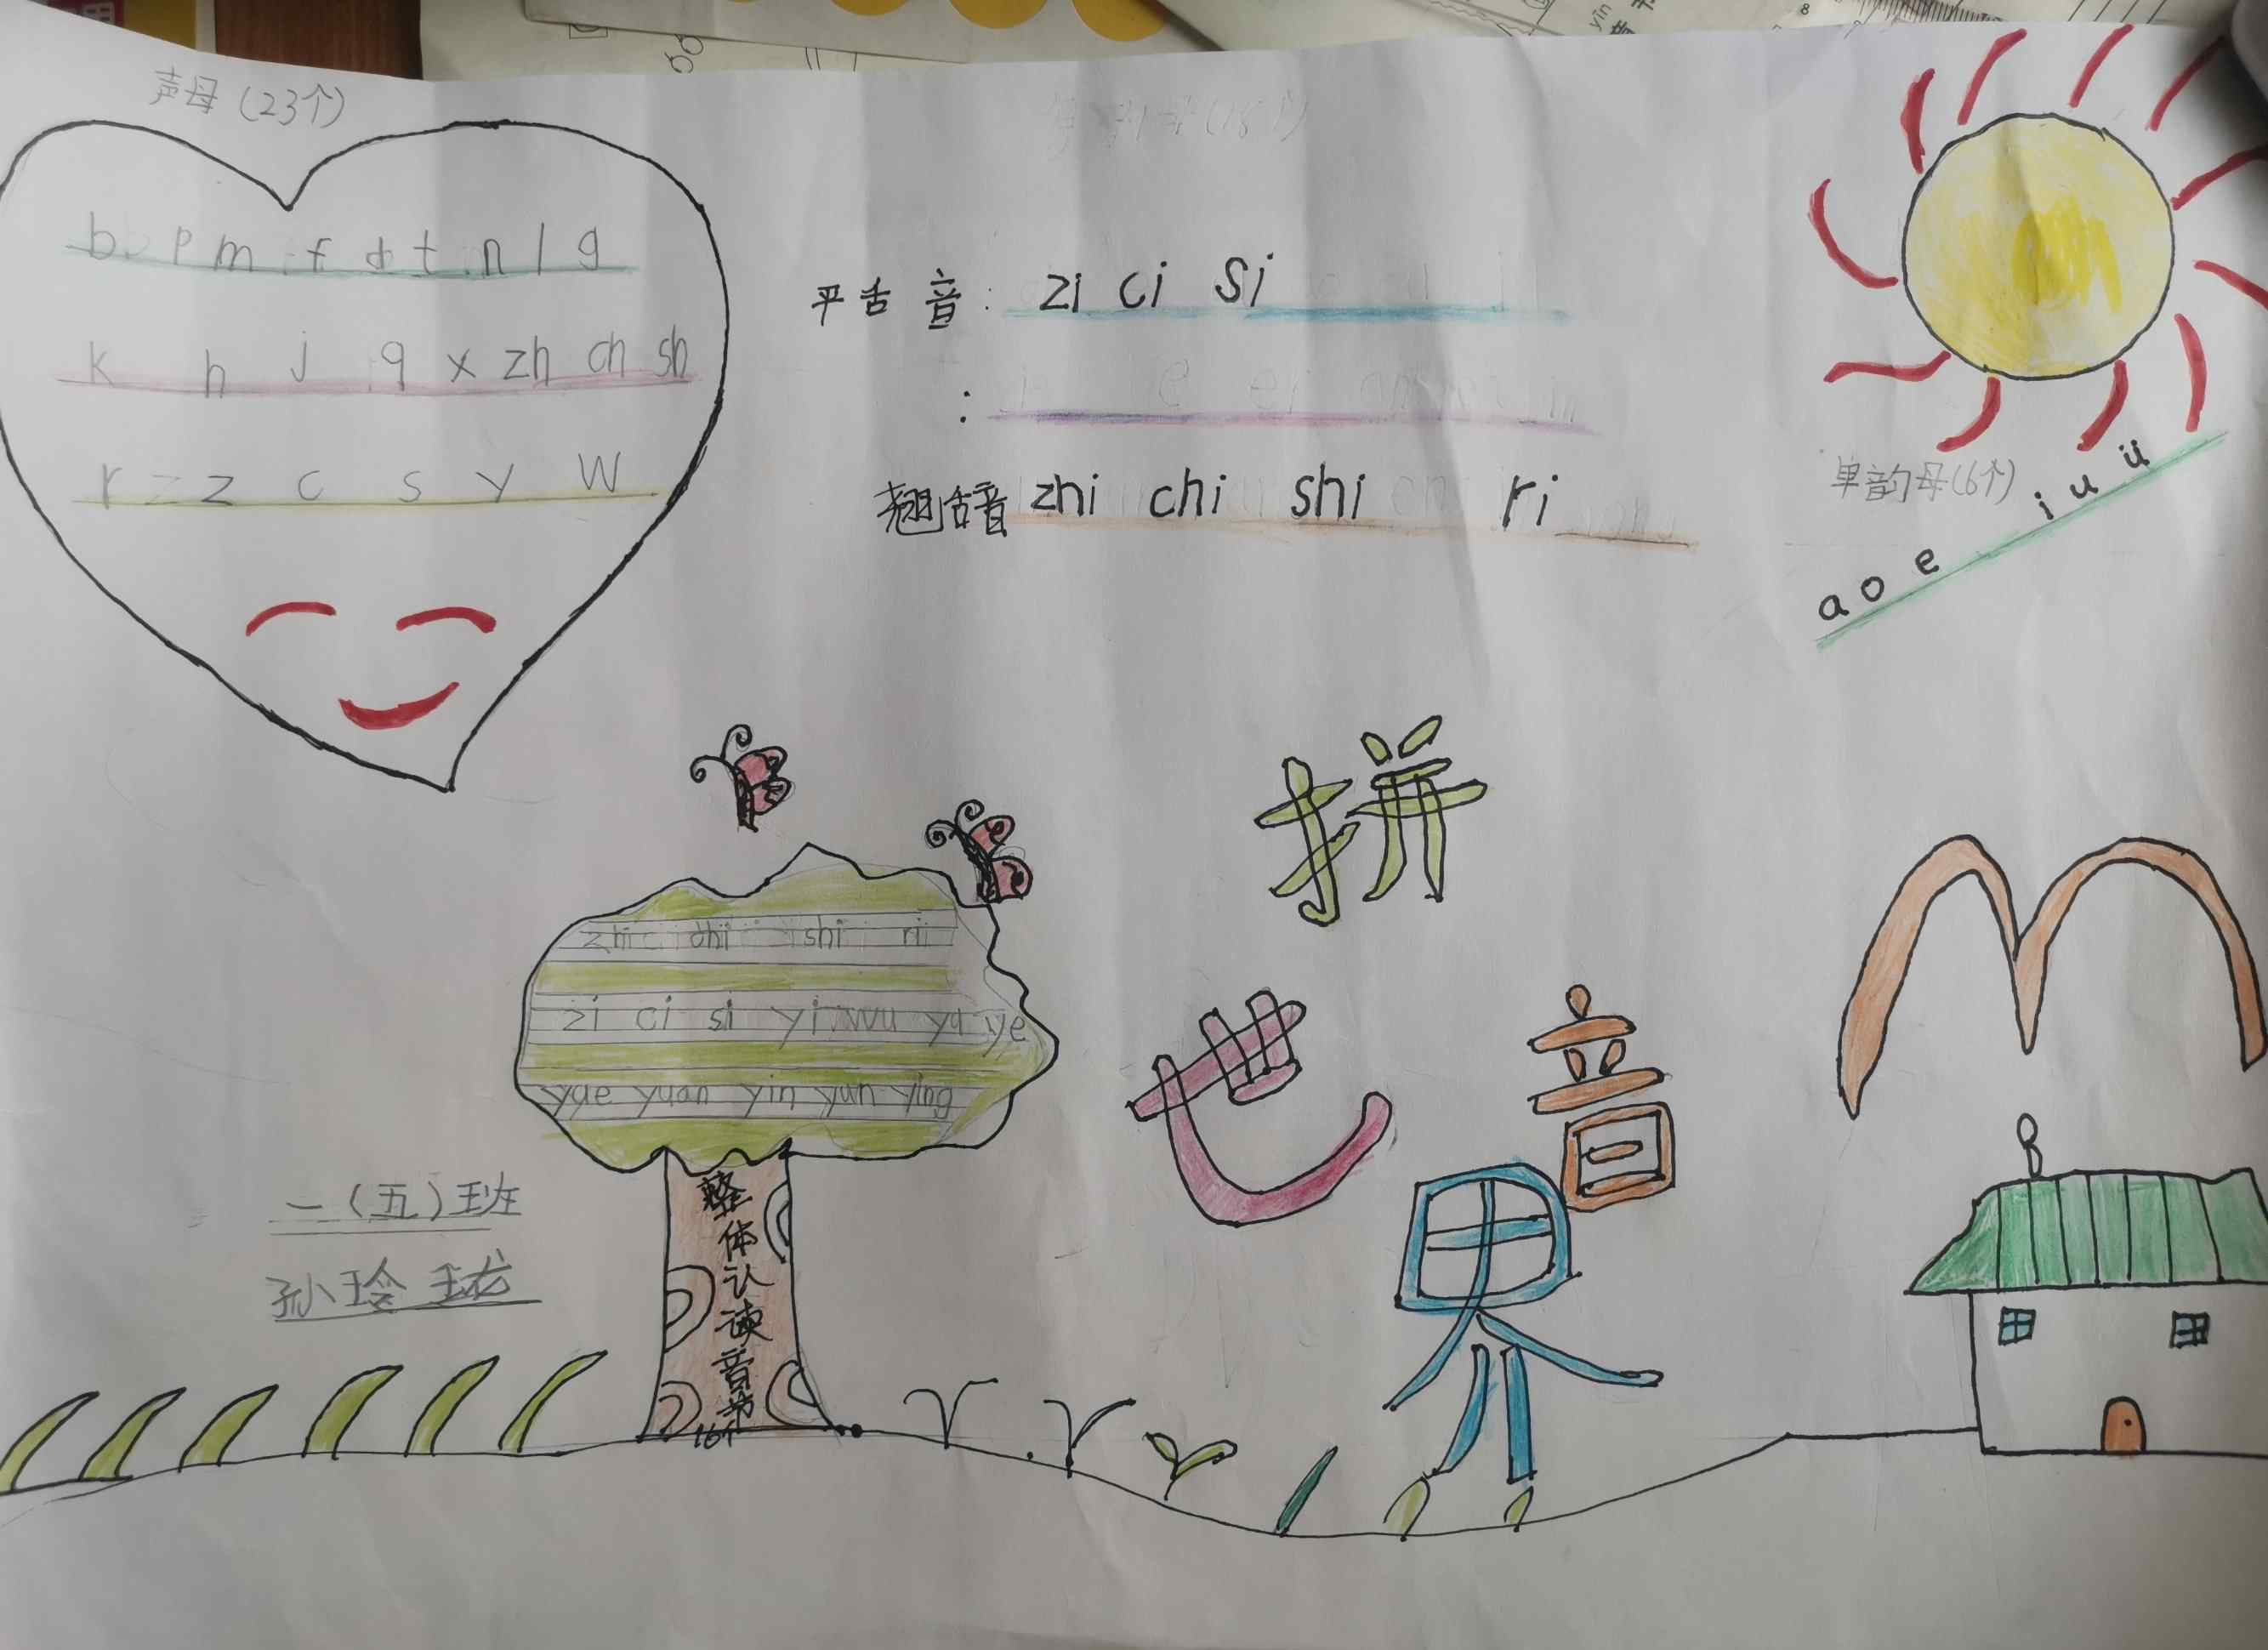 声母（23个）
b p m f d t n l g
k h j q x zh ch sh
r z c s y w
平舌音：zi ci si
：
翘舌音 zhi chi shi ri
单韵母（6个）
a o e i u ü
拼
音
世
界
zhi chi shi ri
zi ci si yi wu yu ye
yue yuan yin yun ying
整体认读音节
16个
一（五）班
孙玲珑